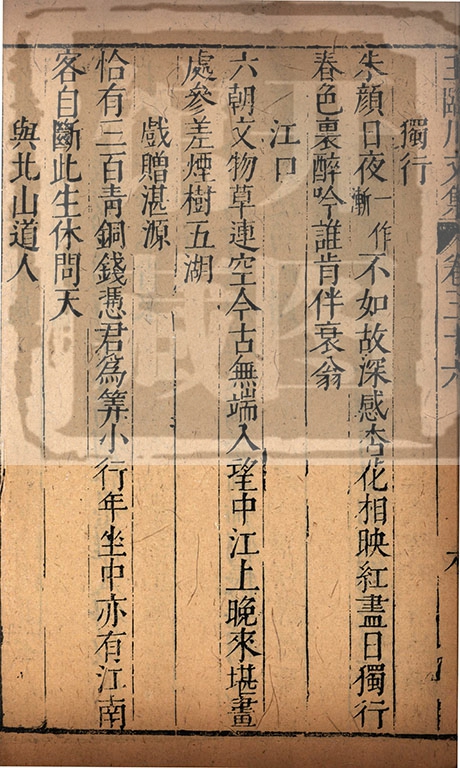 王臨川文集卷三十六
獨行
朱顏日夜一作漸不如故深感杏花相映紅盡日獨行
春色裏醉吟誰肯伴衰翁
江口
六朝文物草連空今古無端入望中江上晚來堪畫
處參差煙樹五湖
戲贈湛源
恰有三百青銅錢憑君爲筭小行年坐中亦有江南
客自斷此生休問天
與北山道人